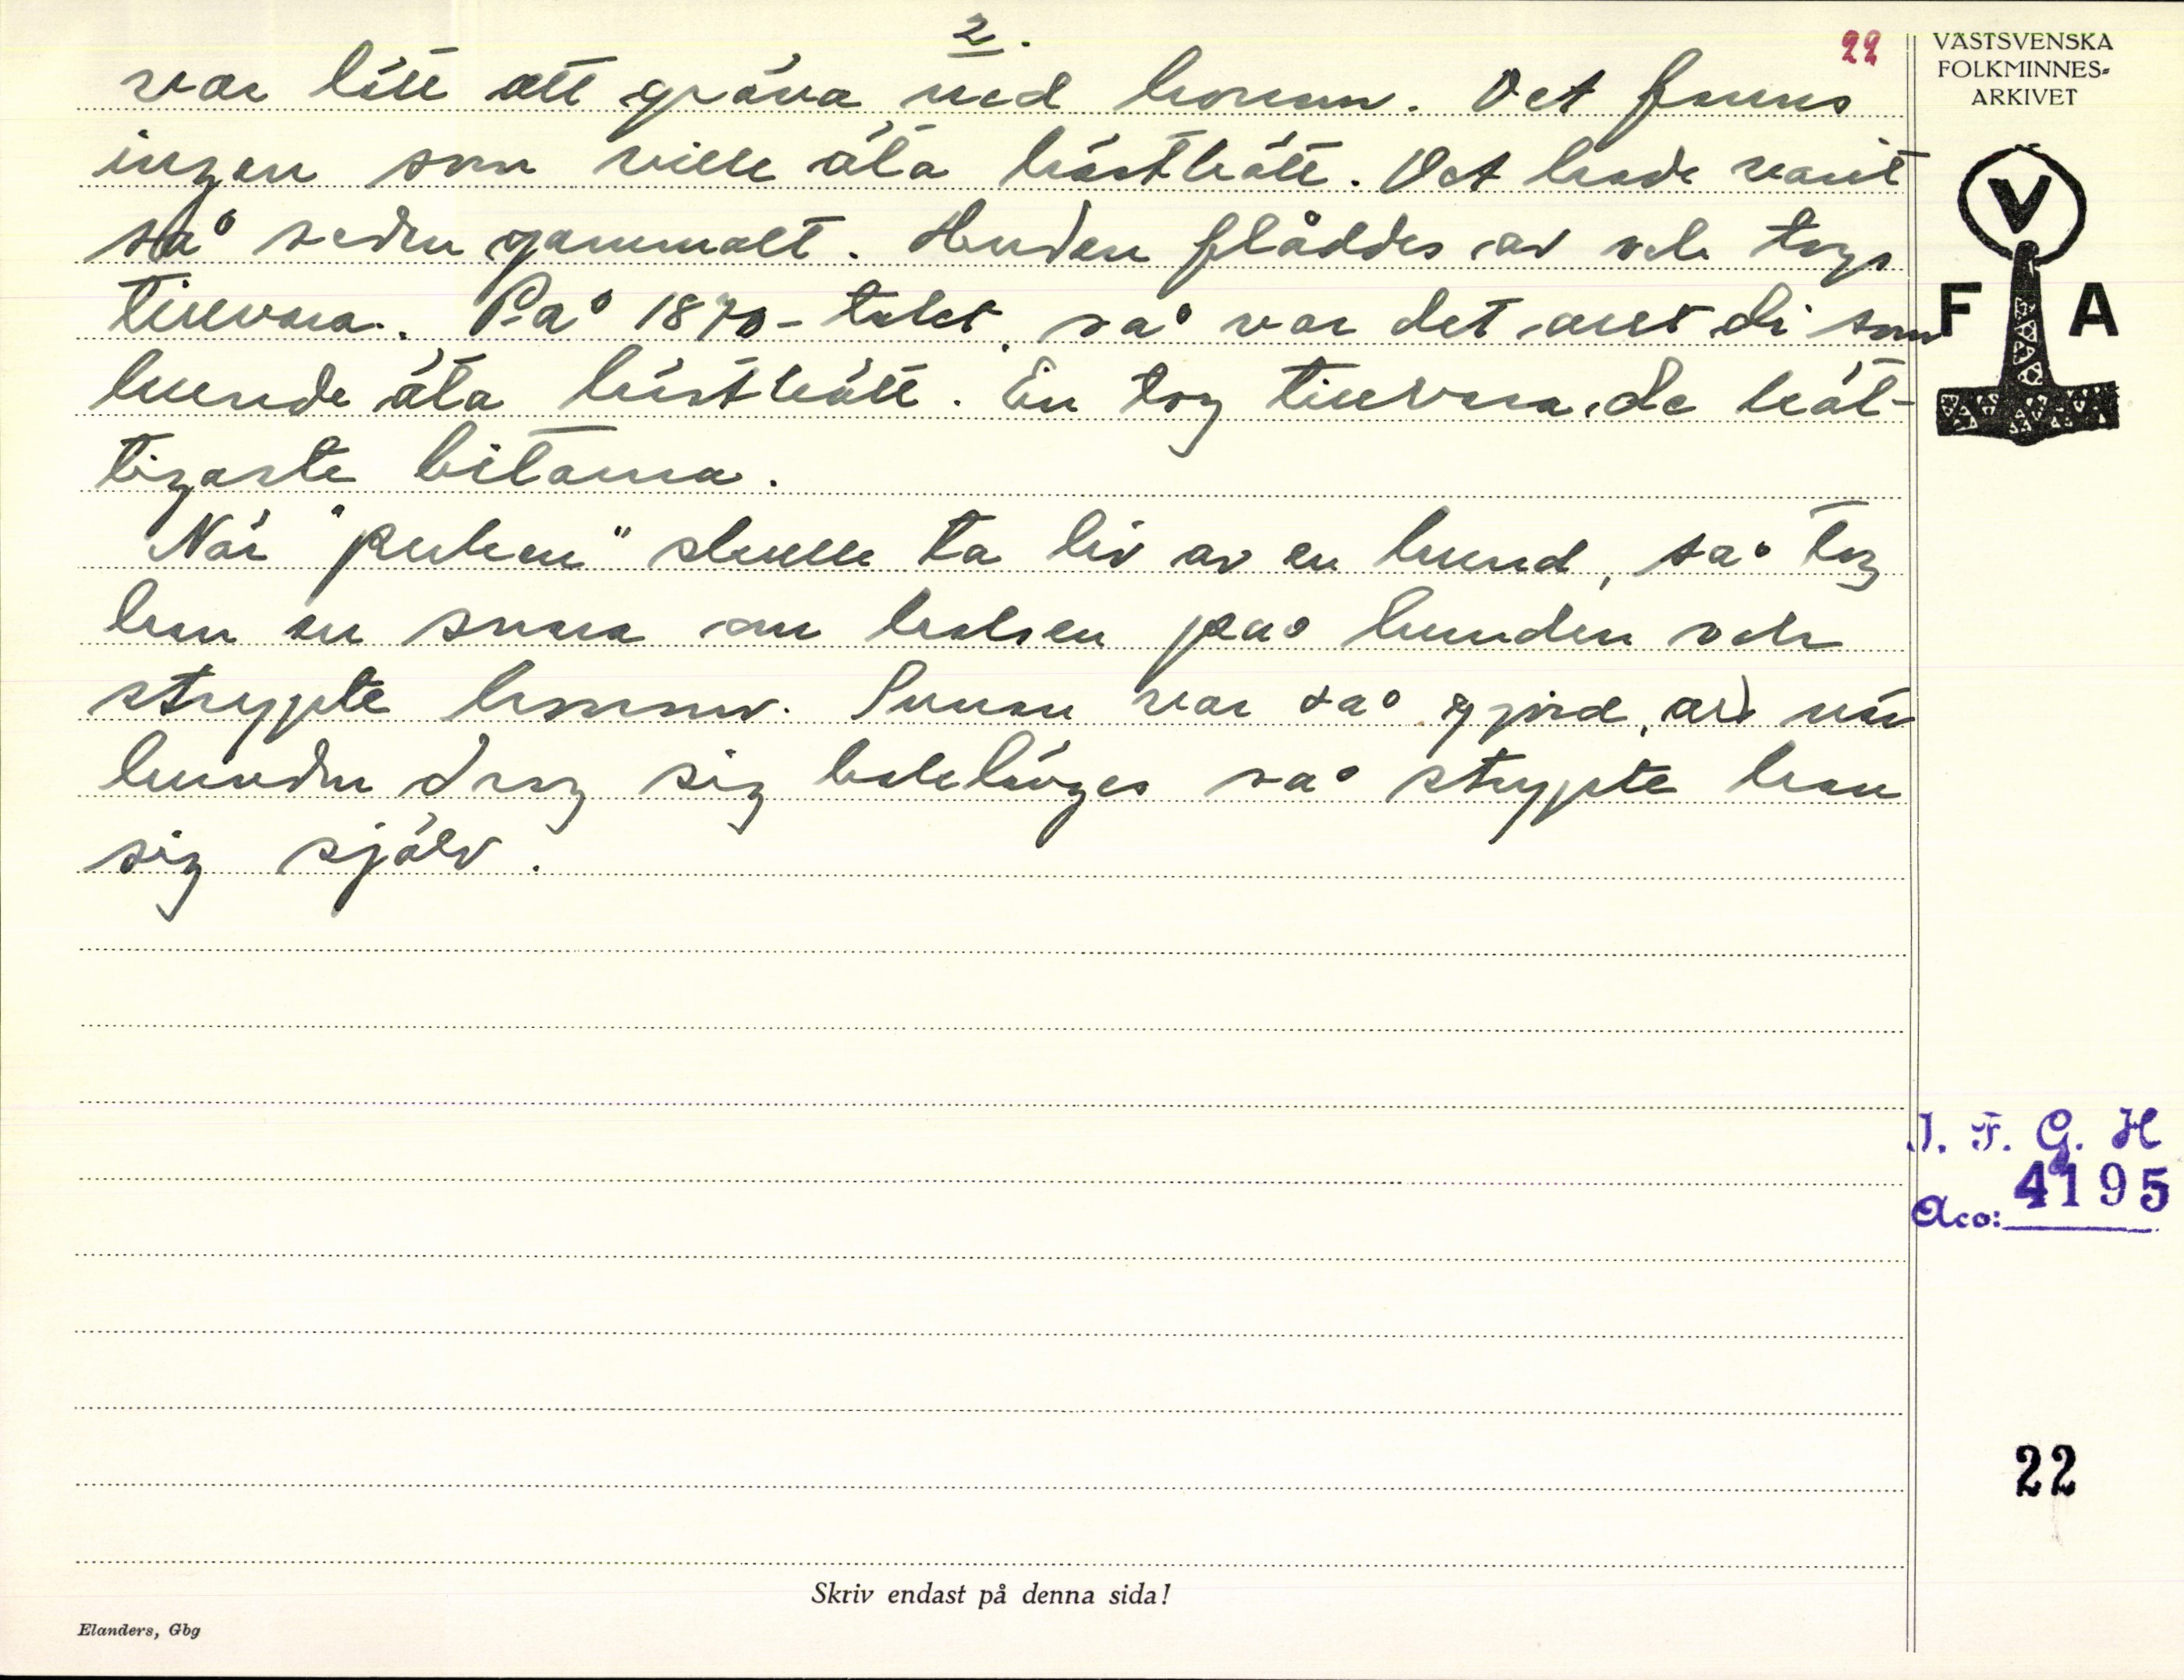 2.
22
var lätt att gräva ned honom. Det fanns
ingen som ville äta hästkött. Det hade varit
så sedan gammalt. Huden flåddes av och togs
tillvara. På 1870-talet, så var det allt di som
kunde äta hästkött. En tog tillvara de köt-
tigaste bitarna.
När "puken" skulle ta liv av en hund, så tog
han en snara om halsen på hunden och
strypte honom. Snaran var så gjord, att när
hunden drog sig baklänges så strypte han
sig själv.
VÄSTSVENSKA
FOLKMINNES-
ARKIVET
V
F A
I. F. G. H
Acc: 4195
22
Skriv endast på denna sida!
Elanders, Gbg